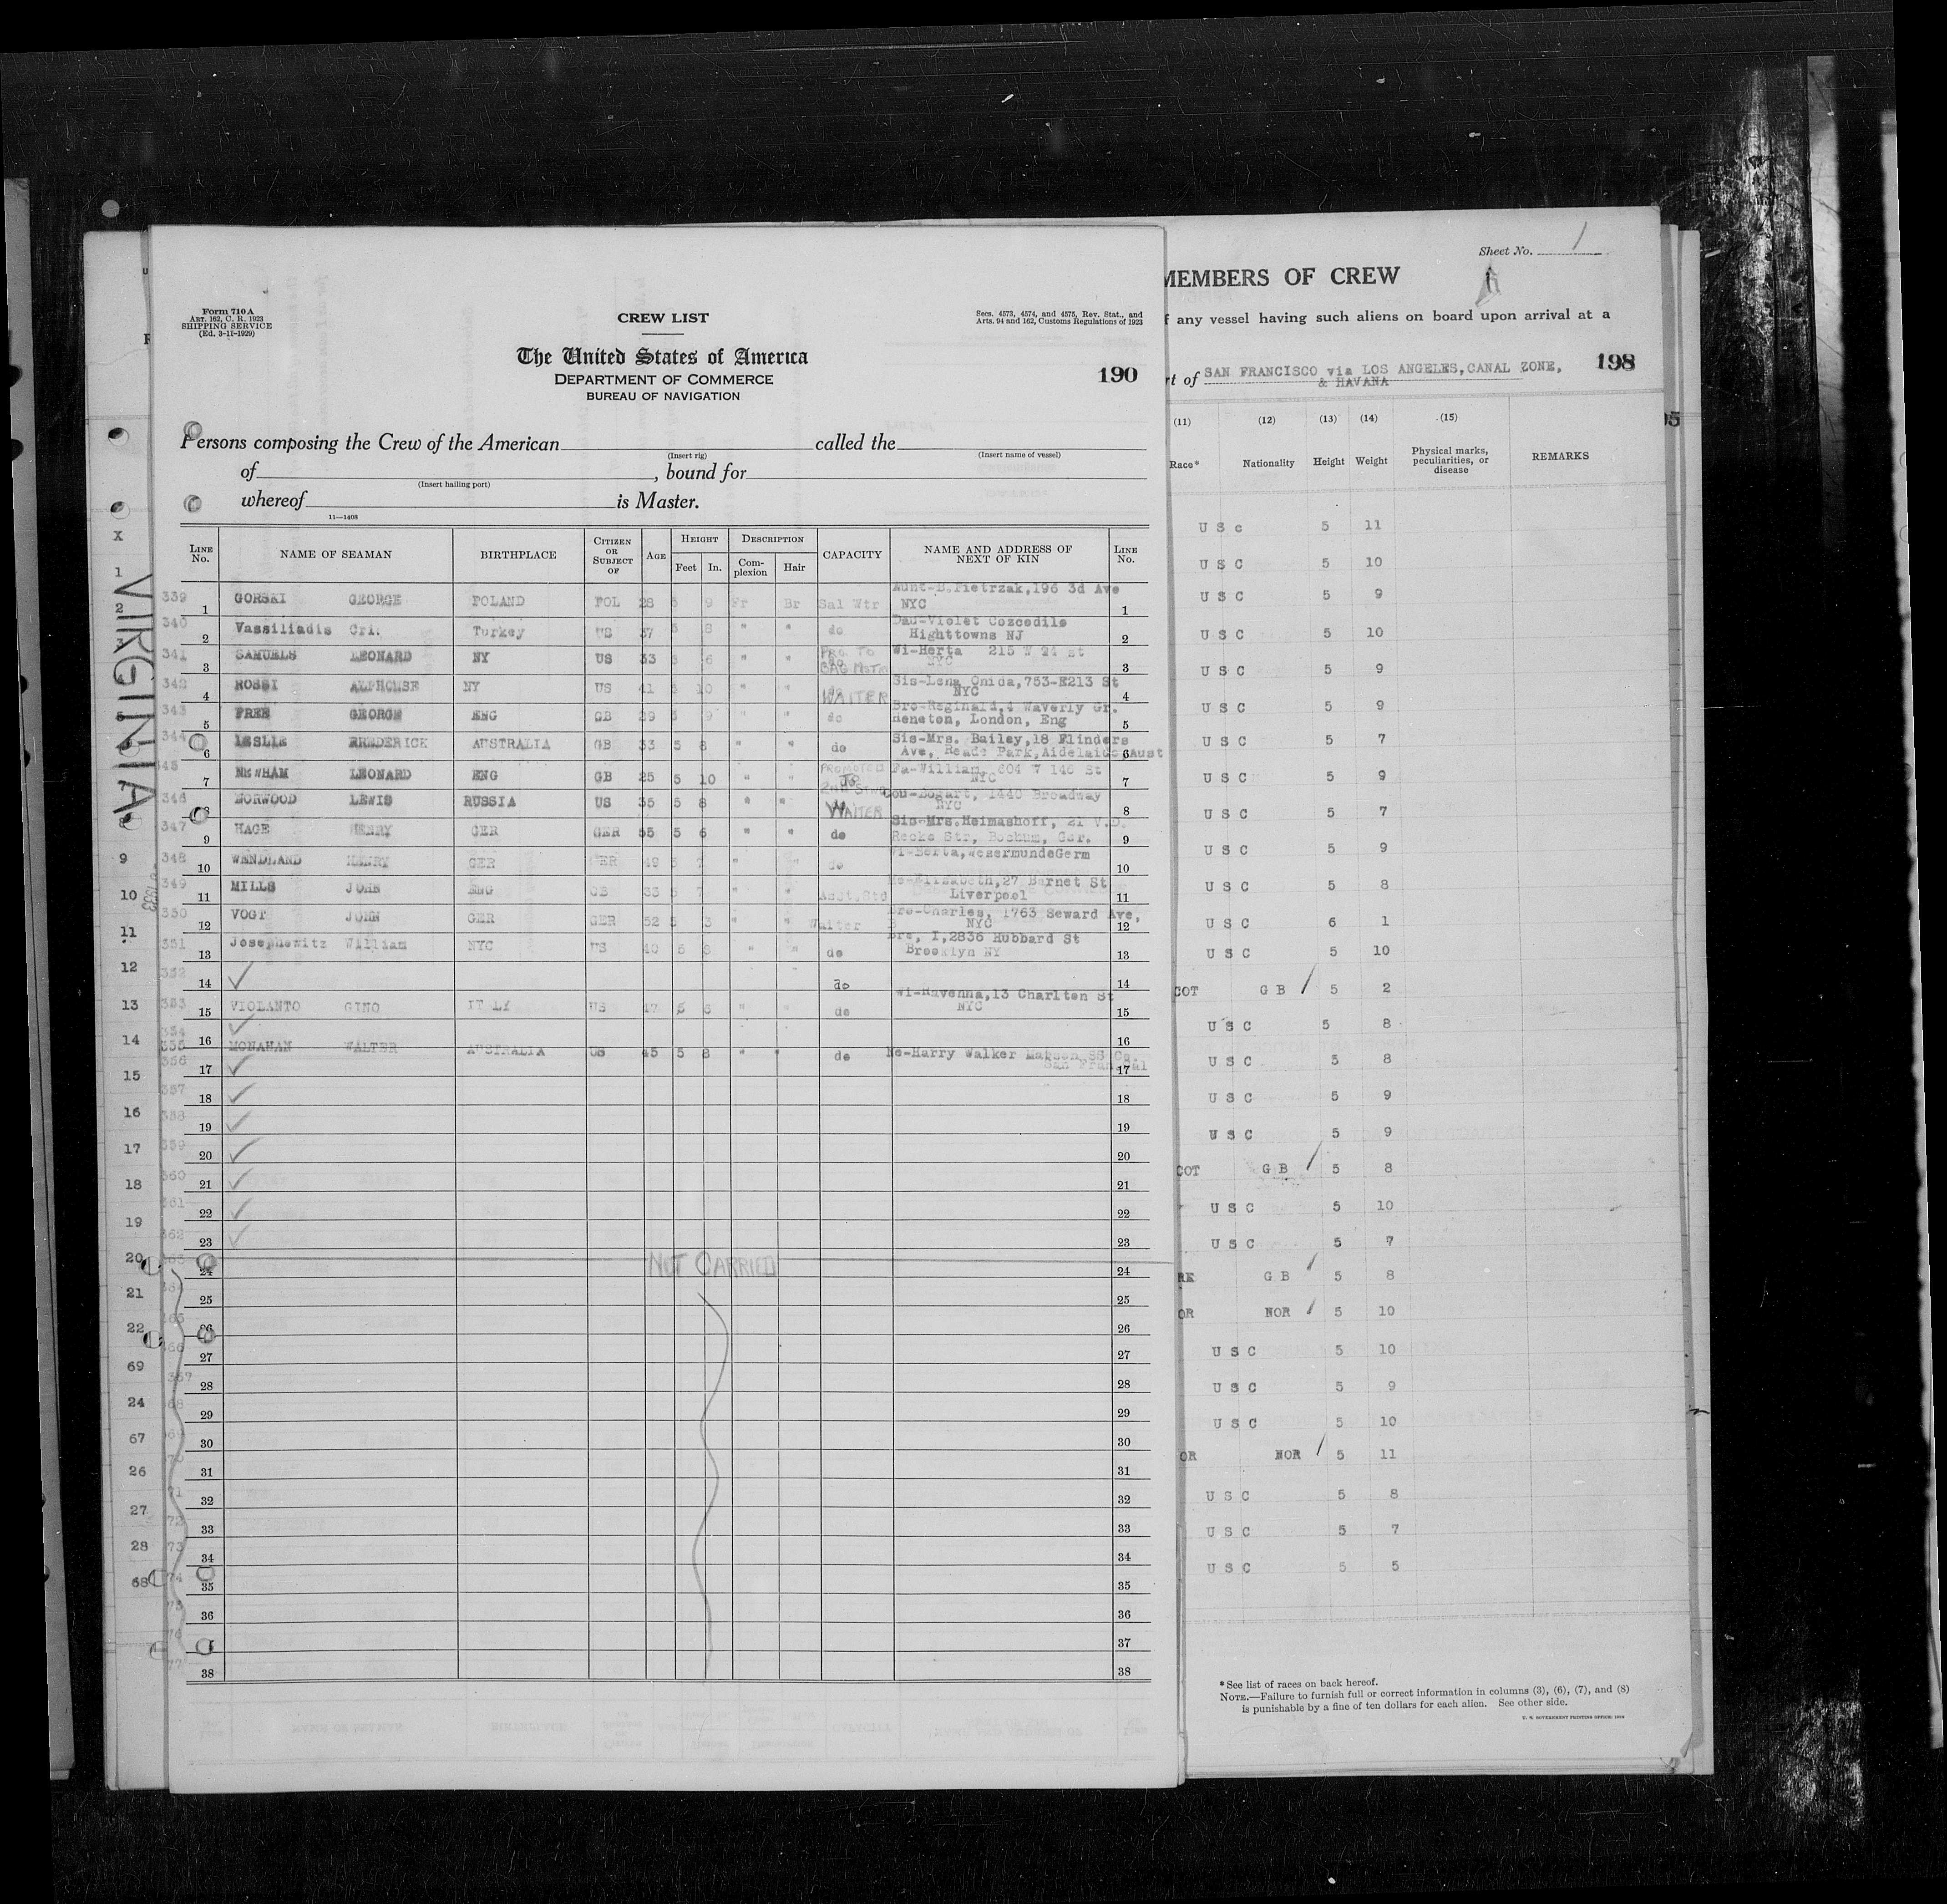 Form 710 A
ART. 162, C. R. 1923
SHIPPING SERVICE
(Ed. 3-11-1929)
CREW LIST
Secs. 4573, 4574, and 4575, Rev. Stat., and
Arts. 94 and 162, Customs Regulations of 1923
The United States of America
DEPARTMENT OF COMMERCE
BUREAU OF NAVIGATION
190
Persons composing the Crew of the American called the
(Insert rig) (Insert name of vessel)
of , bound for
(Insert hailing port)
whereof is Master.
11—1408
LINE No. NAME OF SEAMAN BIRTHPLACE CITIZEN OR SUBJECT OF AGE HEIGHT Feet In. DESCRIPTION Complexion Hair CAPACITY NAME AND ADDRESS OF NEXT OF KIN LINE No.
339 1 GORSKI GEORGE POLAND POL 28 5 9 Fr Br Sal Wtr Aunt-B.Pietrzak,196 3d Ave NYC 1
340 2 Vassiliadis Cri. Turkey US 37 5 8 " " do Dau-Violet Cozcodile Highttowns NJ 2
341 3 SAMUELS LEONARD NY US 33 5 6 " " PRO. TO BAG MSTR Wi-Herta 215 W 24 st NYC 3
342 4 ROSSI ALPHONSE NY US 41 5 10 " " WAITER Sis-Lena Onida,753-E213 St NYC 4
343 5 FREE GEORGE ENG GB 29 5 9 " " do Bro-Reginald,4 Waverly Gr. Heneton, London, Eng 5
344 6 LESLIE FREDERICK AUSTRALIA GB 33 5 8 " " do Sis-Mrs. Bailey,18 Flinders Ave, Reade Park,Aidelaide Aust 6
345 7 NEWHAM LEONARD ENG GB 25 5 10 " " PROMOTED TO Fa-William, 604 W 146 St NYC 7
346 8 NORWOOD LEWIS RUSSIA US 35 5 8 " " WAITER Cou-Bogart, 1440 Broadway NYC 8
347 9 HAGE HENRY GER GER 55 5 6 " " do Sis-Mrs.Heimashoff, 21 V.D. Recke Str, Bochum, Ger. 9
348 10 WENDLAND HENRY GER GER 49 5 7 " " do Wi-Berta,WesermundeGerm 10
349 11 MILLS JOHN ENG GB 33 5 7 " " Asst.Std Me-Elizabeth,27 Barnet St Liverpool 11
350 12 VOGT JOHN GER GER 52 5 3 " " Waiter Bro-Charles, 1763 Seward Ave, NYC 12
351 13 Josephowitz William NYC US 40 5 8 " " do Bro, I,2836 Hubbard St Brooklyn NY 13
352 14 ✓ do 14
353 15 VIOLANTO GINO ITALY US 47 5 6 " " do Wi-Ravenna,13 Charlton St NYC 15
354 16 ✓ 16
355 MONAHAN WALTER AUSTRALIA US 45 5 8 " " do Ne-Harry Walker Matson SS Co San Fran,Cal
356 17 ✓ 17
357 18 ✓ 18
358 19 ✓ 19
359 20 ✓ 20
360 21 ✓ 21
361 22 ✓ 22
362 23 ✓ 23
24 NOT CARRIED 24
25 25
26 26
27 27
28 28
29 29
30 30
31 31
32 32
33 33
34 34
35 35
36 36
37
38 38
VIRGINIA
X
1
2
3
5
9
10
11
12
13
14
15
16
17
18
19
20
21
22
69
24
67
26
27
28
68
Sheet No. 1
MEMBERS OF CREW
any vessel having such aliens on board upon arrival at a
rt of SAN FRANCISCO via LOS ANGELES,CANAL ZONE,
& HAVANA
198
(11) (12) (13) (14) (15)
Race* Nationality Height Weight Physical marks, peculiarities, or disease REMARKS
U S c 5 11
U S C 5 10
U S C 5 9
U S C 5 10
U S C 5 9
U S C 5 9
U S C 5 7
U S C 5 9
U S C 5 7
U S C 5 9
U S C 5 8
U S C 6 1
U S C 5 10
COT G B 5 2
U S C 5 8
U S C 5 8
U S C 5 9
U S C 5 9
COT G B 5 8
U S C 5 10
U S C 5 7
RE G B 5 8
OR NOR 5 10
U S C 5 10
U S C 5 9
U S C 5 10
OR NOR 5 11
U S C 5 8
U S C 5 7
U S C 5 5
* See list of races on back hereof.
NOTE.—Failure to furnish full or correct information in columns (3), (6), (7), and (8)
is punishable by a fine of ten dollars for each alien. See other side.
U. S. GOVERNMENT PRINTING OFFICE: 1932